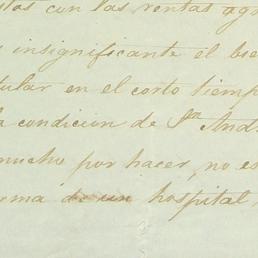 con las rentas
insignificante el bien
en el corto tiemp
la condicion de Sn Andr
mucho por hacer, no es
rma de un hospital,